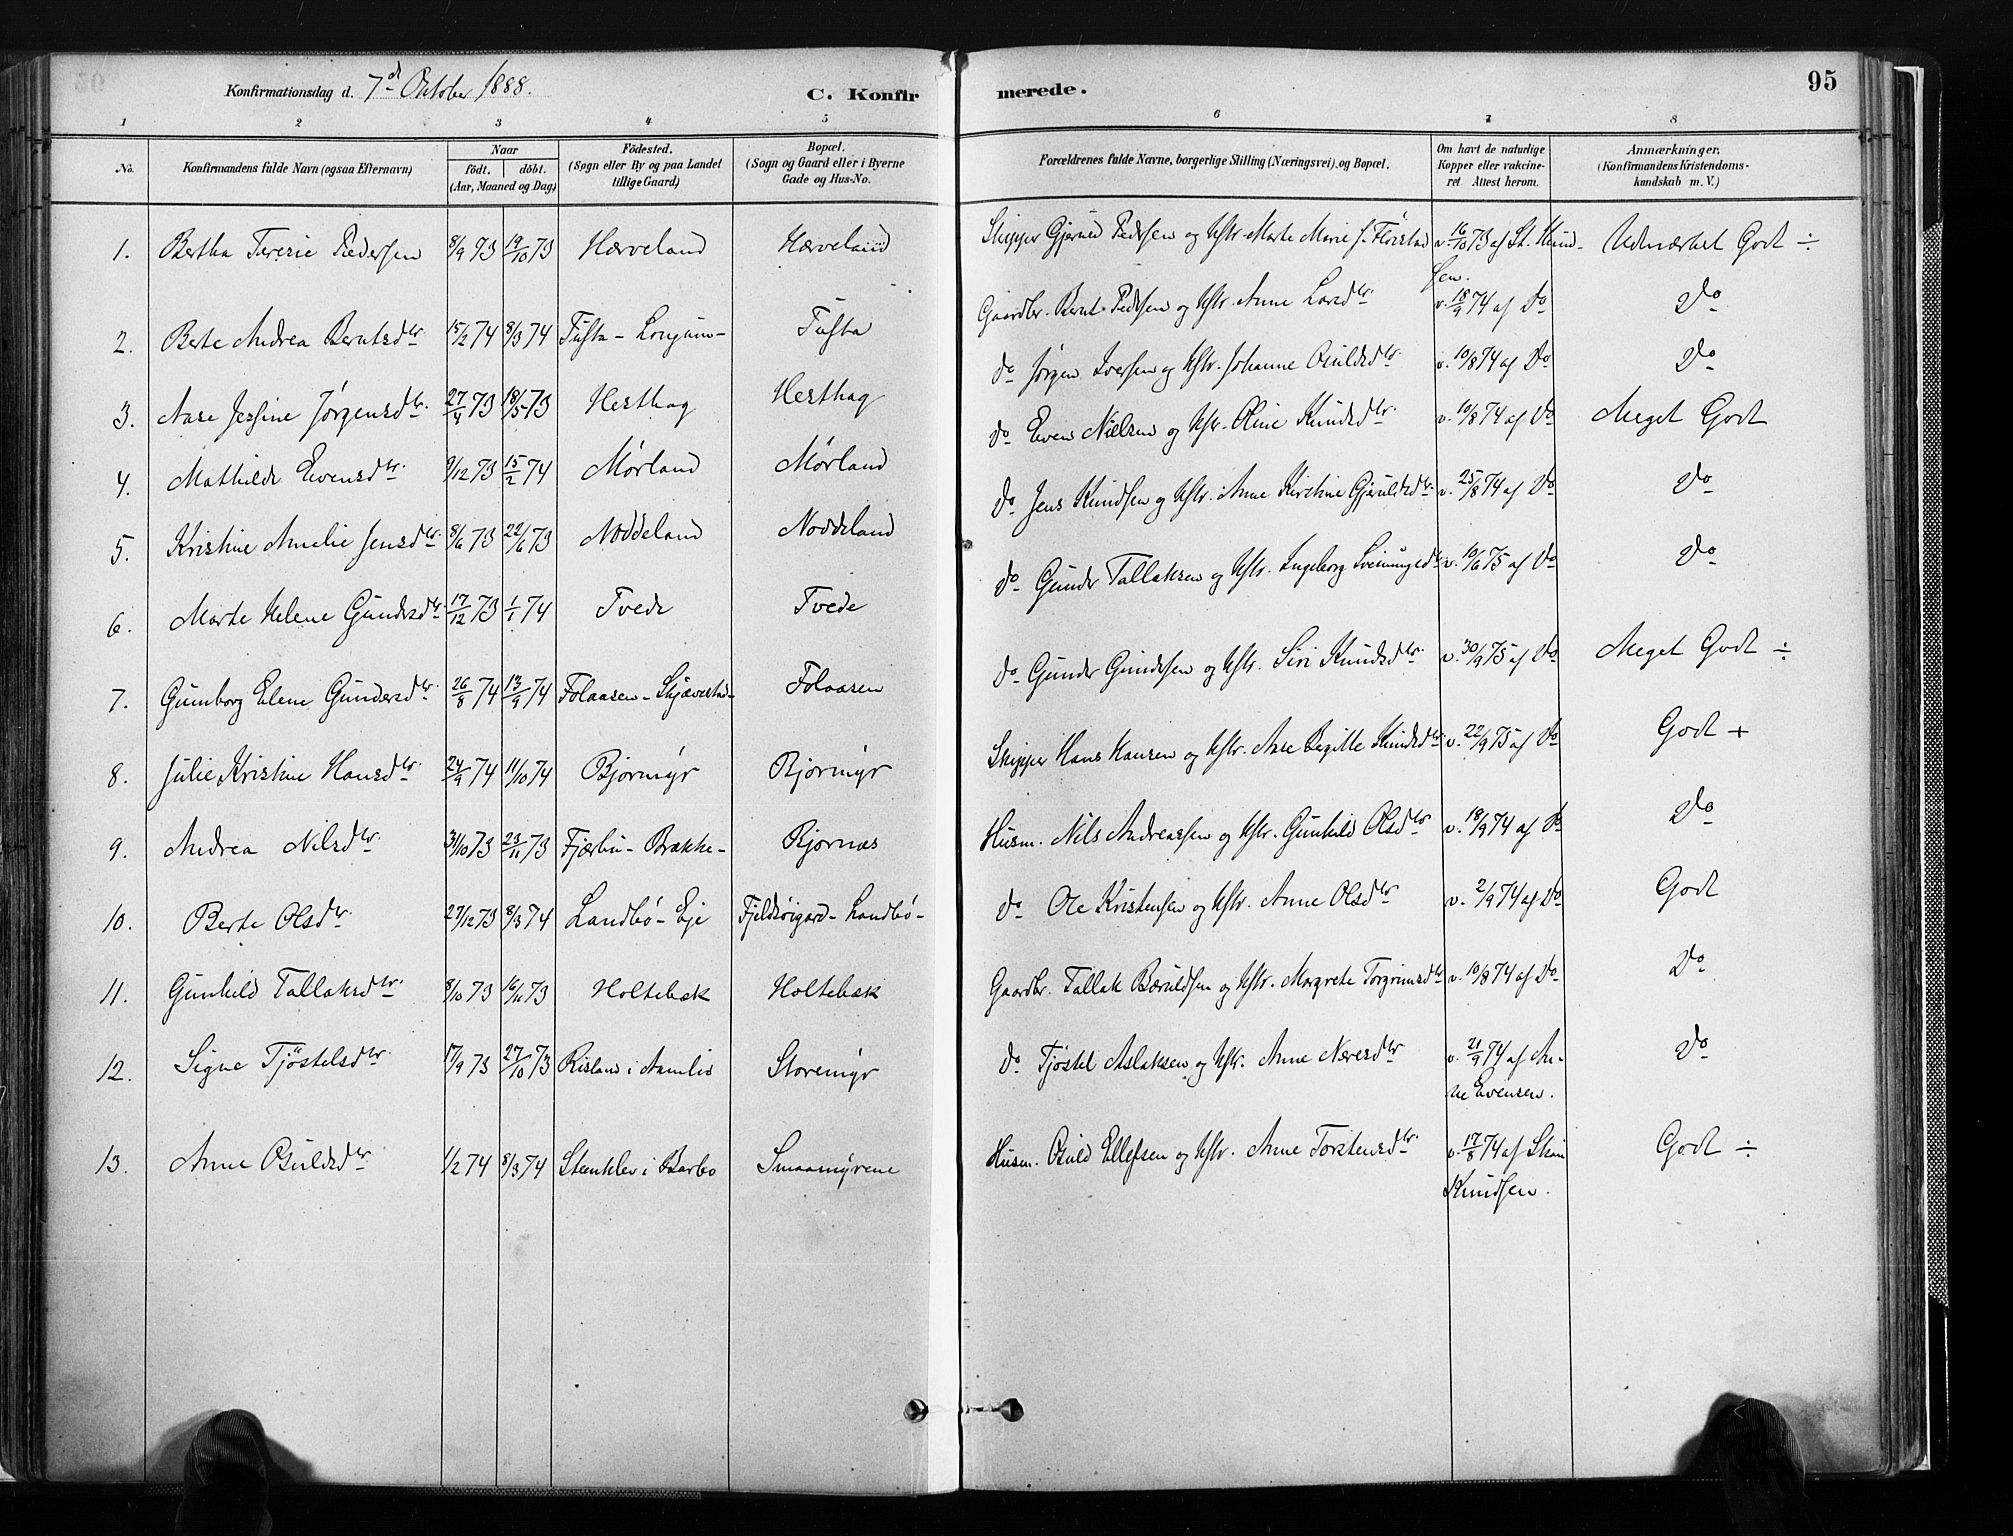 95
Konfirmationsdag d. 7de Oktober 1888.
C. Konfirmerede.
1 2 3 4 5 6 7 8
No. Konfirmandens fulde Navn (ogsaa Efternavn) Naar födt. döbt. (Aar, Maaned og Dag) Födested. (Sogn eller By og paa Landet tillige Gaard) Bopæl. (Sogn og Gaard eller i Byerne Gade og Hus-No. Forældrenes fulde Navne, borgerlige Stilling (Næringsvei), og Bopæl. Om havt de naturlige Kopper eller vakcineret. Attest herom. Anmærkninger. (Konfirmandens Kristendomskundskab m. V.)
1. Bertha Teresie Pedersen 8/9 73 19/10 73 Hærveland Hærveland Skipper Gjerud Pedersen og Hstr. Marte Marie f. Flöistad v. 16/10 73 af St. Knudsen. Udmærket Godt ÷
2. Berte Andrea Berntsdtr. 15/2 74 8/3 74 Tufta - Longum- Tufta Gaardbr. Bernt Pedersen og Hstr. Anne Larsdtr. v. 18/9 74 af Do Do
3. Aase Jessine Jörgensdtr. 27/4 73 18/5 73 Hesthag Hesthag do Jörgen Iversen og Hstr. Johanne Osuldsdtr. v. 10/8 74 af Do Do
4. Mathilde Evensdtr. 9/12 73 15/2 74 Mörland Mörland do Even Nielsen og Hstr. Oline Knudsdtr. v. 10/8 74 af Do Meget Godt
5. Kristine Amelie Jensdtr. 8/6 73 22/6 73 Noddeland Noddeland do Jens Knudsen og Hstr. Anne Kirstine Gjeruldsdtr. v. 25/8 74 af Do Do
6. Marte Helene Gundersdtr. 17/12 73 1/1 74 Tvede Tvede do Gunder Tallaksen og Hstr. Ingeborg Sveinungsdtr. v. 10/6 75 af Do Do
7. Gunborg Elene Gundersdtr. 26/8 74 13/9 74 Folaasen - Skjævestad- Folaasen do Gunder Gundersen og Hstr. Siri Knudsdtr. v. 30/9 75 af Do Meget Godt ÷
8. Julie Kristine Hansdtr. 24/9 74 11/10 74 Bjormyr Bjormyr Skipper Hans Hansen og Hstr. Aase Segitte Knudsdtr. v. 22/9 75 af Do Godt +
9. Andrea Nilsdtr. 31/10 73 23/11 73 Fjærbu - Brække- Bjornæs Husm. Nils Andreassen og Hstr. Gunhild Olsdtr. v. 18/9 74 af Do Do
10. Berte Olsdtr. 27/12 73 8/3 74 Landbö - Eje Landbö- do Ole Kristensen og Hstr. Anne Olsdtr. v. 2/9 74 af Do Godt
11. Gunhild Tallaksdtr. 8/10 73 16/11 73 Holtebæk Holtebæk Gaardbr. Tallak Bæruldsen og Hstr. Margrete Torgrimsdtr. v. 10/8 74 af Do Do
12. Signe Tjöstelsdtr. 17/9 73 27/10 73 Risland i Aamlid Storemyr do Tjöstel Aslaksen og Hstr. Anne Næresdtr v. 21/9 74 af Anne Evensen. Do
13. Anne Osuldsdtr. 1/2 74 8/3 74 Stenklev i Barbo Smaamyrene Husm. Osuld Ellefsen og Hstr. Anne Torstensdtr. v. 17/8 74 af Knudsen. Godt ÷